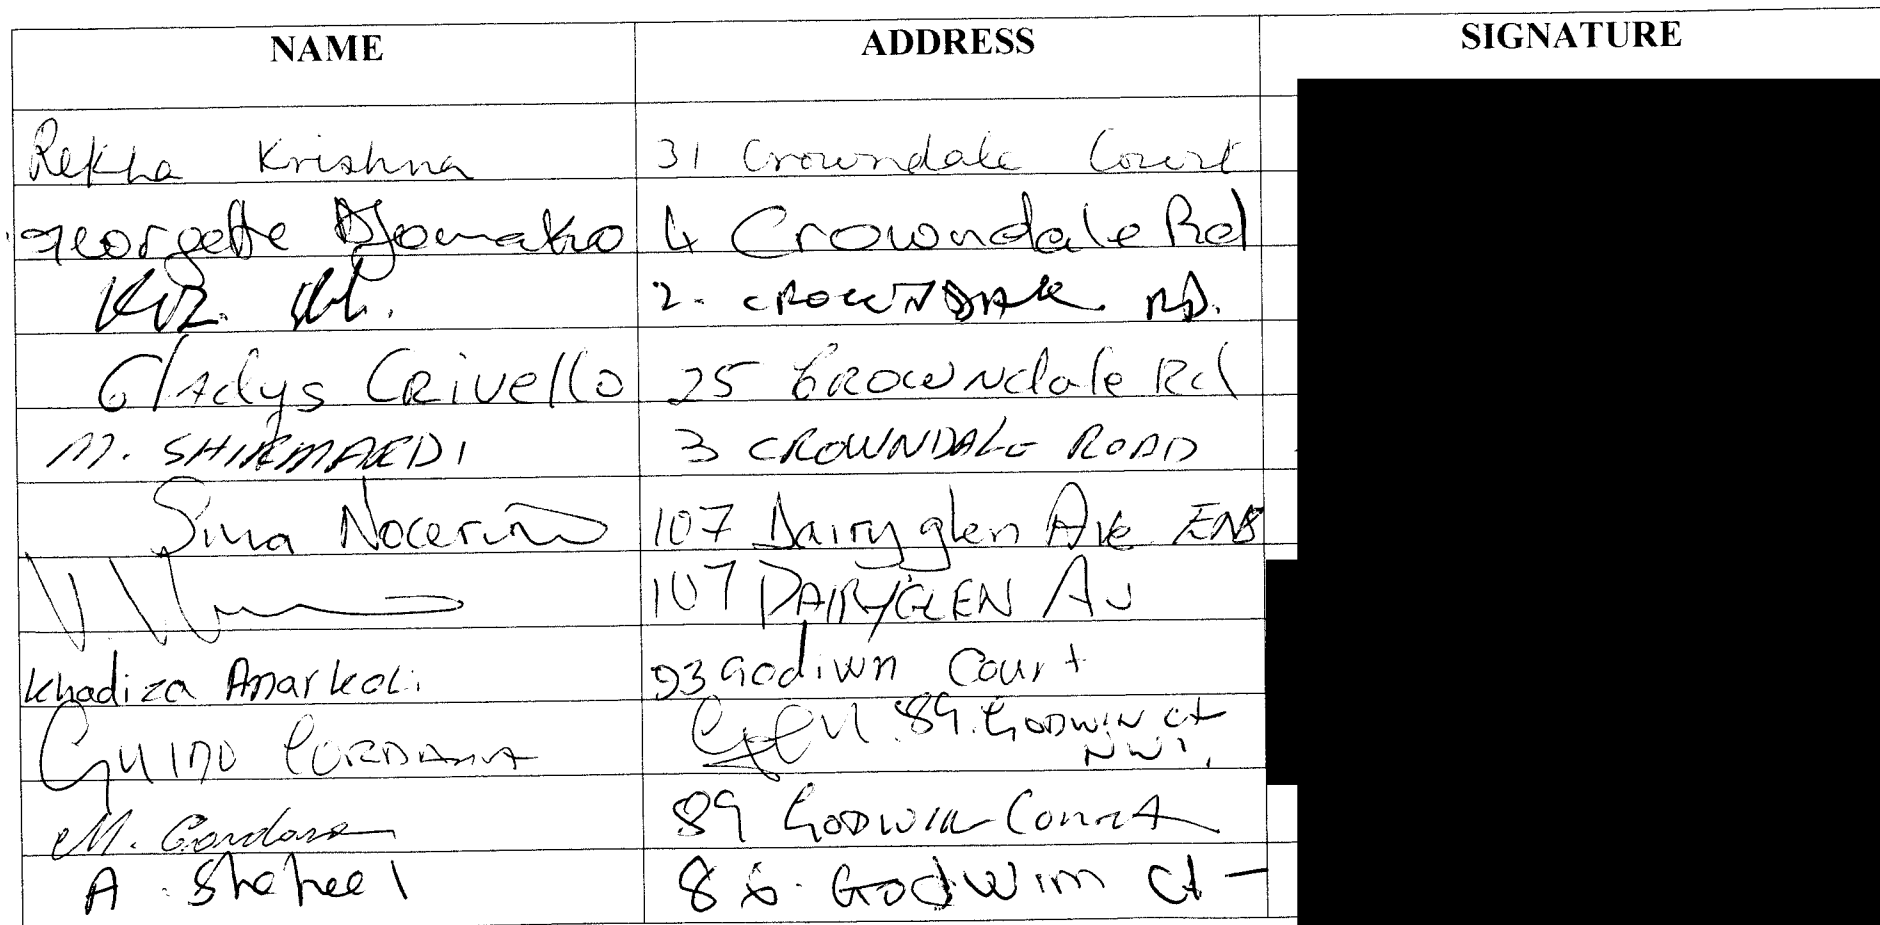 NAME ADDRESS SIGNATURE
Rekha Krishna 31 Crowndale Court
georgette Djomako 4 Crowndale Rd
2. CROWNDALE RD.
Gladys CRivello 25 CROWNdale Rd
M. SHIRMARDI 3 CROWNDALE ROAD
Nocerino 107 Dairyglen Ave EN8
107 DAIRYGLEN Av
Khadiza Anarkoli 93 Godiwn Court
GUIDO CORDARA 89. GODWIN Ct
NW1,
M. Cordara 89 GODWIN Court
A. Shaheel Godwim Ct -